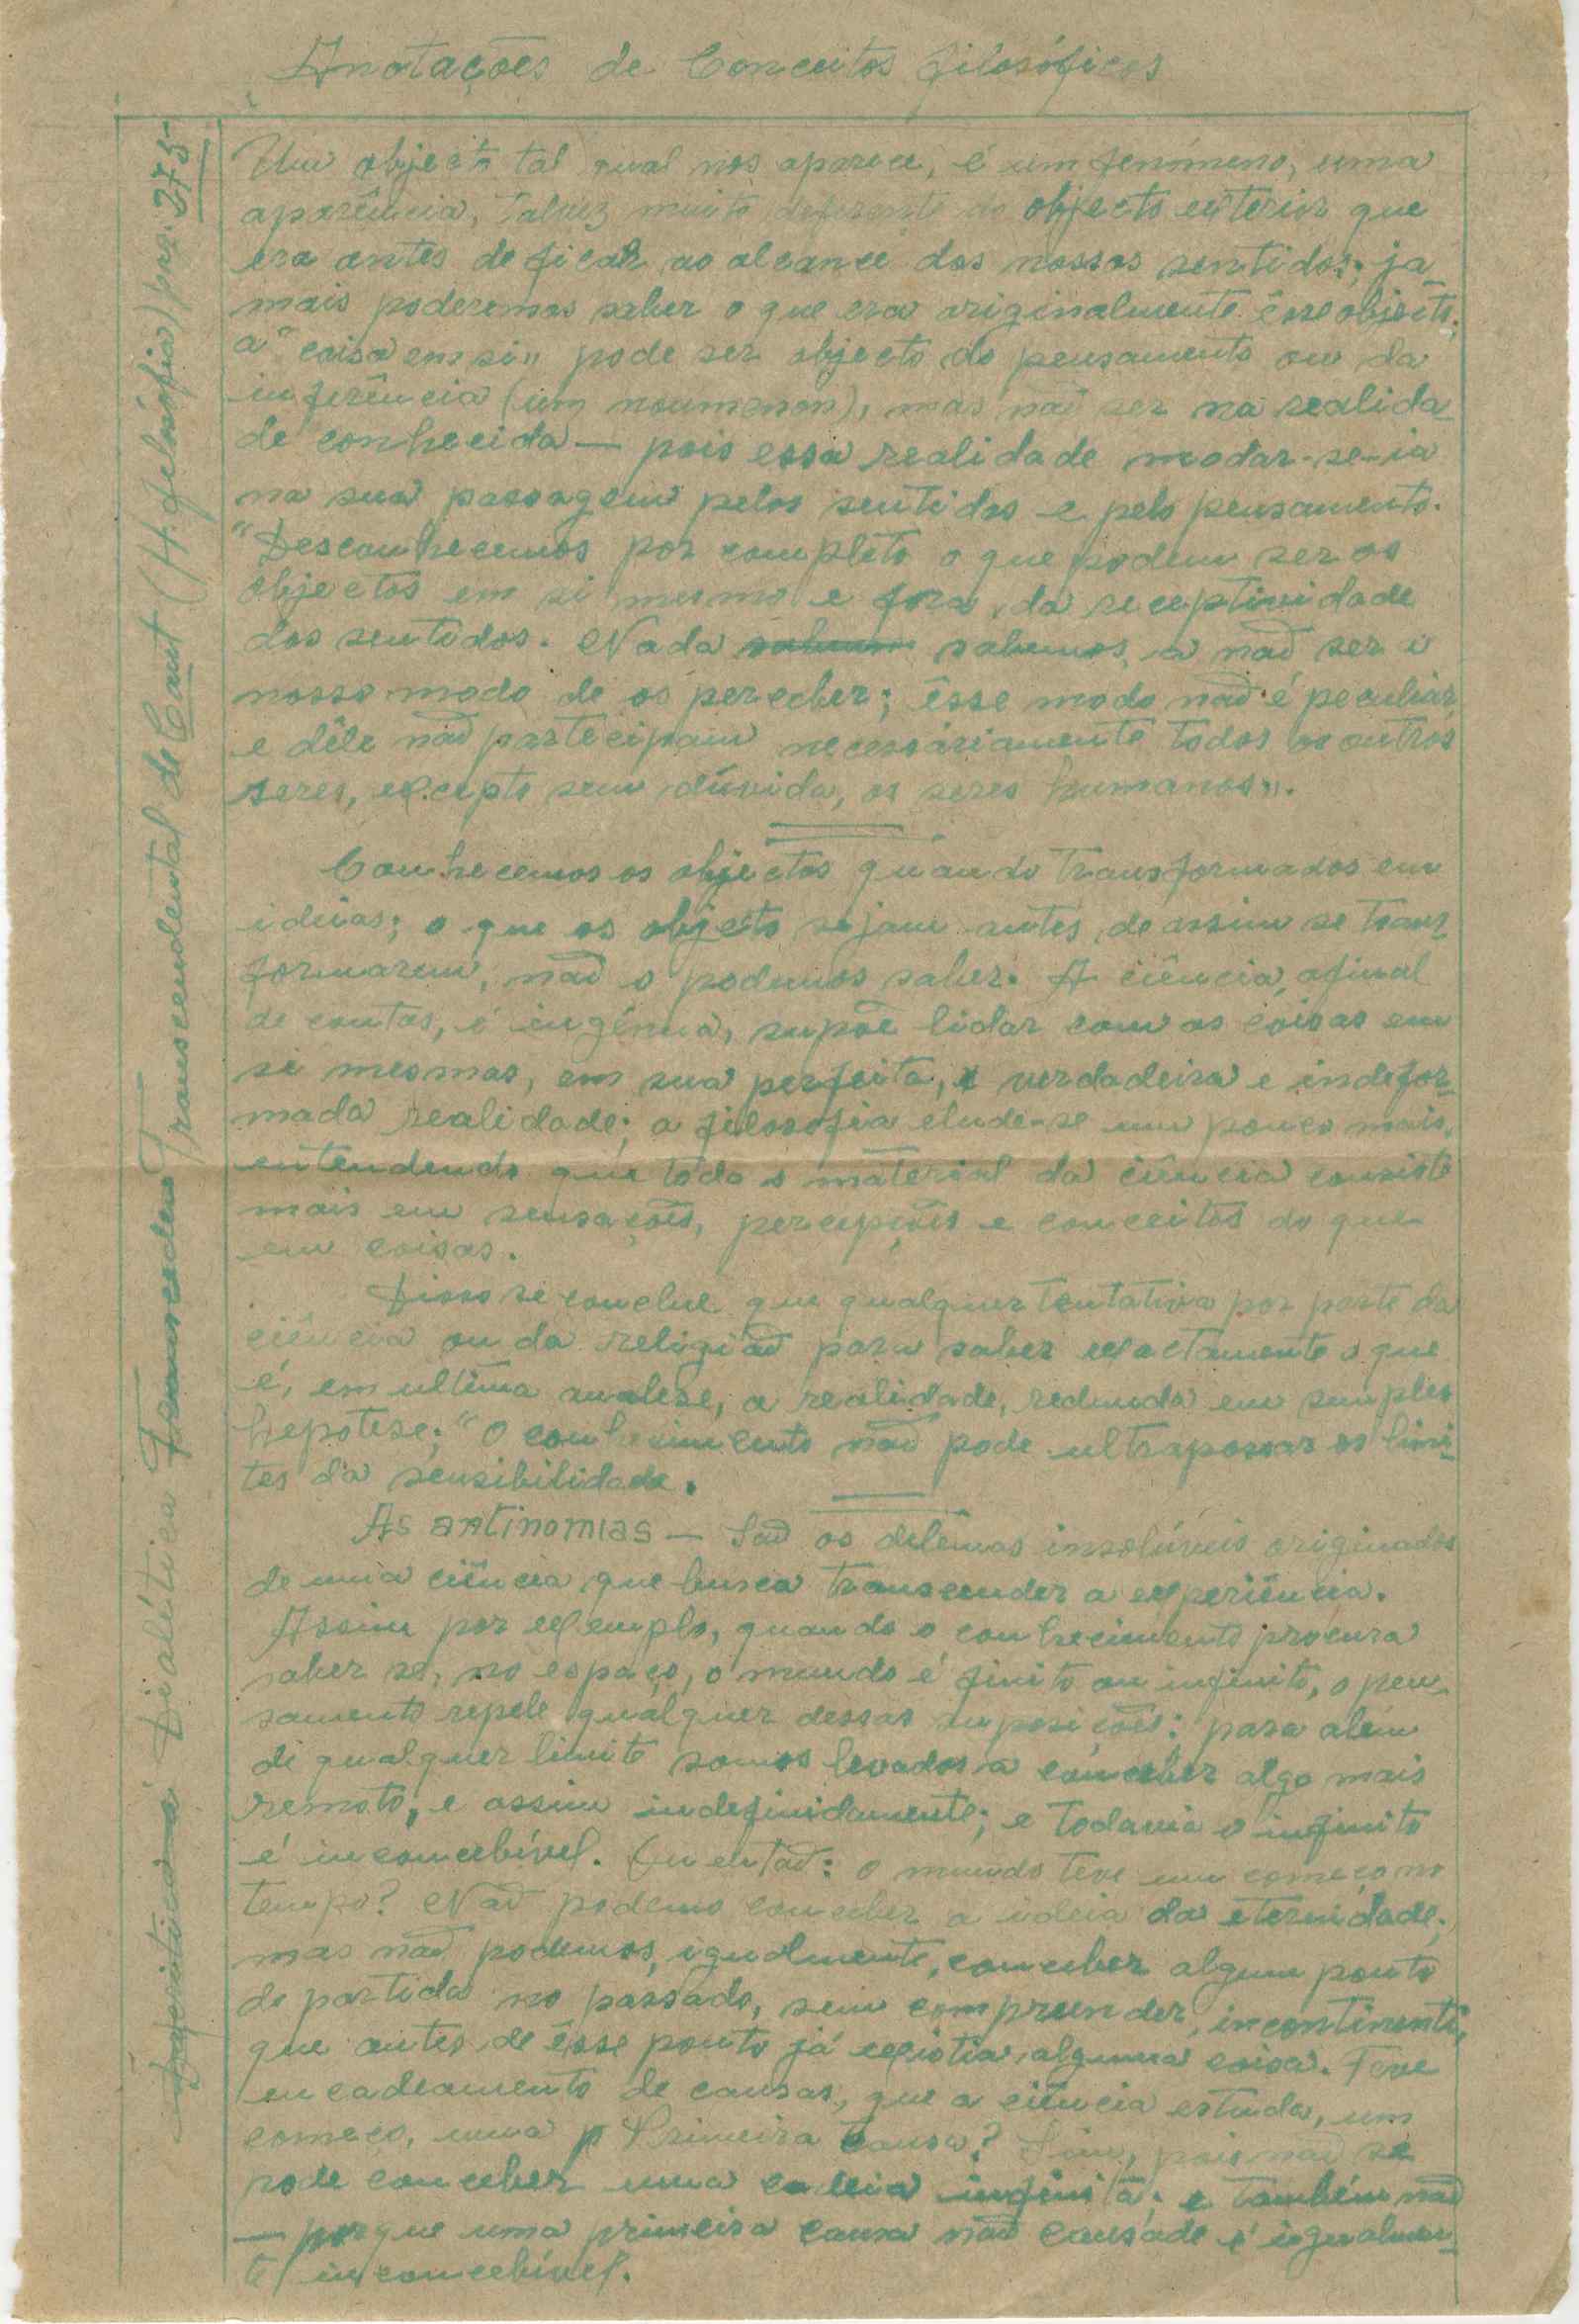 Anotações de Conceitos filosóficos
Um objecto tal qual nos aparece, é um fenómeno, uma
aparência, talvez muito deferente do objecto exterior que
era antes de ficar ao alcance dos nossos sentidos; ja-
mais poderemos saber o que era originalmente êsse objecto;
a "coisa em si" pode ser objecto do pensamento ou da
inferência (um noumenon), mas naõ ser na realida-
de conhecida — pois essa realidade modar-se-ia
na sua passagem pelos sentidos e pelo pensamento.
"Desconhecemos por completo o que podem ser os
objectos em si mesmo e fora da receptividade
dos sentidos. Nada sabemos a naõ ser o
nosso modo de os perceber; êsse modo naõ é peculiar
e dêle naõ participam necessáriamente todos os outros
seres, excepto sem dúvida, os seres humanos".
Conhecemos os objectos quando transformados em
ideias; o que os objecto sejam antes de assim se trans-
formarem, naõ o podemos saber. A ciência, afinal
de contas, é ingénua, supõe lidar com as coisas em
si mesmas, em sua perfeita, e verdadeira e indefor-
mada realidade; a filosofia elude-se um pouco mais,
entendendo que todo o material da ciência consiste
mais em sensações, percepções e conceitos do que
em coisas.
Disso se conclue que qualquer tentativa por parte da
ciência ou da religiaõ para saber exactamente o que
é, em ultima analese, a realidade, redunda em simples
hepotese; "O conhecimento naõ pode ultrapassar os limi-
tes da sensibilidade.
As antinomias — Saõ os dilêmas insolúveis originados
de uma ciência que busca transcender a experiência.
Assim por exemplo, quando o conhecimento procura
saber se, no espaço, o mundo é finito ou infinito, o pen-
samento repele qualquer dessas suposições: para além
de qualquer limite somos levados a conceber algo mais
remoto, e assim indefinidamente; e todavia o infinito
é inconcebível. Ou entaõ: o mundo teve um começo no
tempo? Naõ podemo conceber a ideia da eternidade;
mas naõ podemos, igualmente, conceber algum ponto
de partida no passado, sem compreender, incontinenti,
que antes de êsse ponto já existia alguma coisa. Teve
encadeamento de causas, que a ciência estuda, um
começo, uma Primeira Causa? Sim, pois naõ se
pode conceber uma cadeia infinita; e também naõ
— porque uma primeira causa naõ causade é igualmen-
te inconcebível.
Dialéctica Transcendental de Cant (H. filosófia) pag. 275